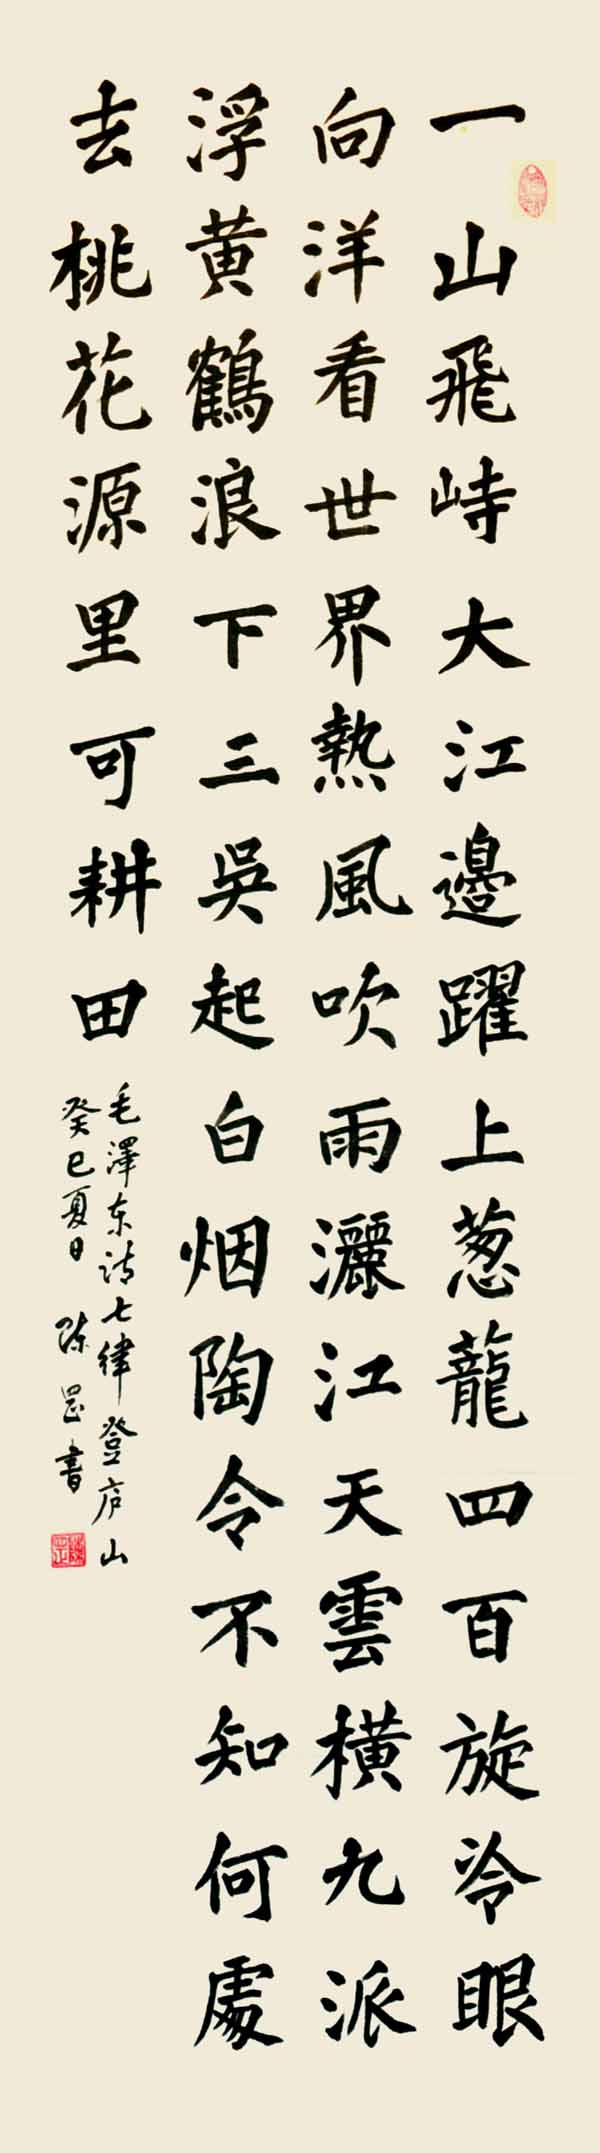 一山飛峙大江邊躍上葱龍四百旋冷眼
向洋看世界熱風吹雨灑江天雲橫九派
浮黄鶴浪下三吳起白烟陶令不知何處
去桃花源里可耕田
毛澤东诗七律登庐山
癸巳夏日 陈書